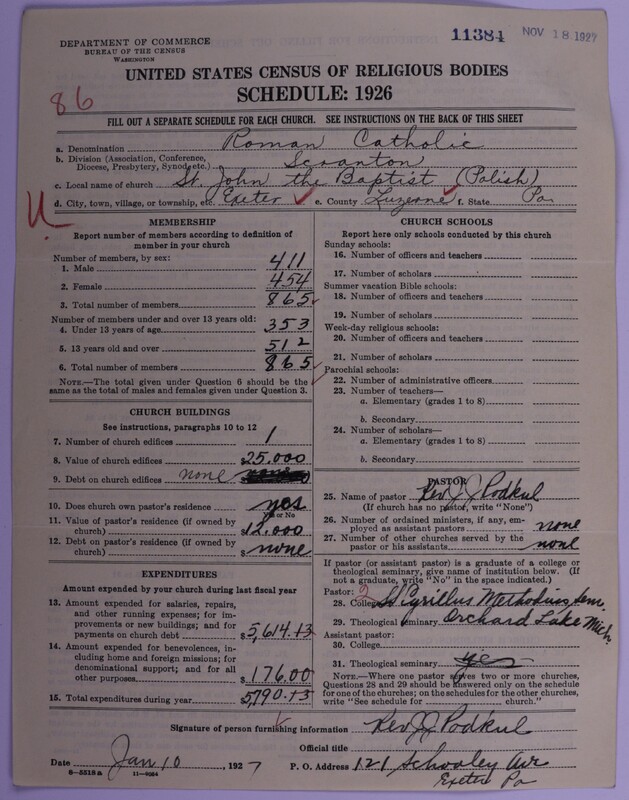 11384
NOV 18 1927
DEPARTMENT OF COMMERCE
BUREAU OF THE CENSUS
WASHINGTON
86
UNITED STATES CENSUS OF RELIGIOUS BODIES
SCHEDULE: 1926
FILL OUT A SEPARATE SCHEDULE FOR EACH CHURCH. SEE INSTRUCTIONS ON THE BACK OF THIS SHEET
a. Denomination Roman Catholic
b. Division (Association, Conference, Diocese, Presbytery, Synod, etc.) Scranton
c. Local name of church St. John the Baptist (Polish)
d. City, town, village, or township, etc. Exeter e. County Luzerne f. State Pa
U.
MEMBERSHIP
Report number of members according to definition of
member in your church
Number of members, by sex:
1. Male 411
2. Female 454
3. Total number of members 865
Number of members under and over 13 years old:
4. Under 13 years of age 353
5. 13 years old and over 512
6. Total number of members 865
NOTE.—The total given under Question 6 should be the
same as the total of males and females given under Question 3.
CHURCH BUILDINGS
See instructions, paragraphs 10 to 12
7. Number of church edifices 1
8. Value of church edifices $25.000
9. Debt on church edifices none
10. Does church own pastor's residence yes
Yes or No
11. Value of pastor's residence (if owned by
church) $12.000
12. Debt on pastor's residence (if owned by
church) $none
EXPENDITURES
Amount expended by your church during last fiscal year
13. Amount expended for salaries, repairs,
and other running expenses; for im-
provements or new buildings; and for
payments on church debt $5,614.13
14. Amount expended for benevolences, in-
cluding home and foreign missions; for
denominational support; and for all
other purposes $176.00
15. Total expenditures during year 5790.13
CHURCH SCHOOLS
Report here only schools conducted by this church
Sunday schools:
16. Number of officers and teachers
17. Number of scholars
Summer vacation Bible schools:
18. Number of officers and teachers
19. Number of scholars
Week-day religious schools:
20. Number of officers and teachers
21. Number of scholars
Parochial schools:
22. Number of administrative officers
23. Number of teachers—
a. Elementary (grades 1 to 8)
b. Secondary
24. Number of scholars—
a. Elementary (grades 1 to 8)
b. Secondary
PASTOR
25. Name of pastor Rev J J Podkul
(If church has no pastor, write "None")
26. Number of ordained ministers, if any, em-
ployed as assistant pastors none
27. Number of other churches served by the
pastor or his assistants none
If pastor (or assistant pastor) is a graduate of a college or
theological seminary, give name of institution below. (If
not a graduate, write "No" in the space indicated.)
Pastor: 2
28. College St Cyrillus Methodius Sem.
29. Theological seminary Orchard Lake Mich.
Assistant pastor:
30. College
31. Theological seminary yes
NOTE.—Where one pastor serves two or more churches,
Questions 28 and 29 should be answered only on the schedule
for one of the churches; on the schedules for the other churches,
write "See schedule for church."
Signature of person furnishing information Rev J J Podkul
Official title
Date Jan 10 1927 P. O. Address 121 Schooley Ave
Exeter Pa
8—5518a 11—9024